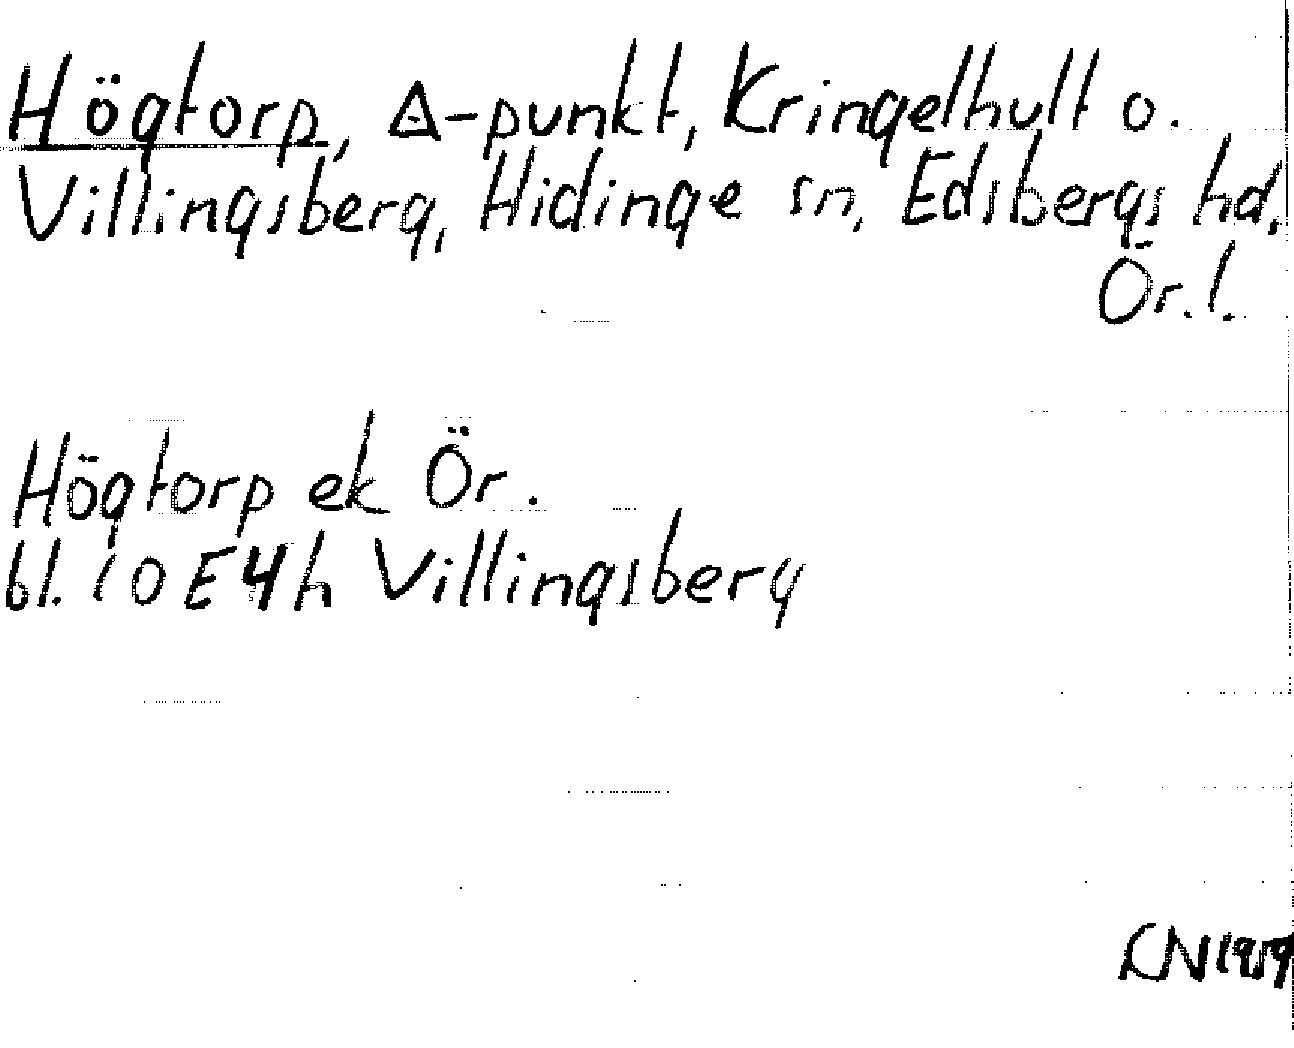 Högtorp, △-punkt, Kringelhult o.
Villingsberg, Hidinge sn, Edsbergs hd,
Ör.l.
Högtorp ek Ör.
bl. 10E4h Villingsberg